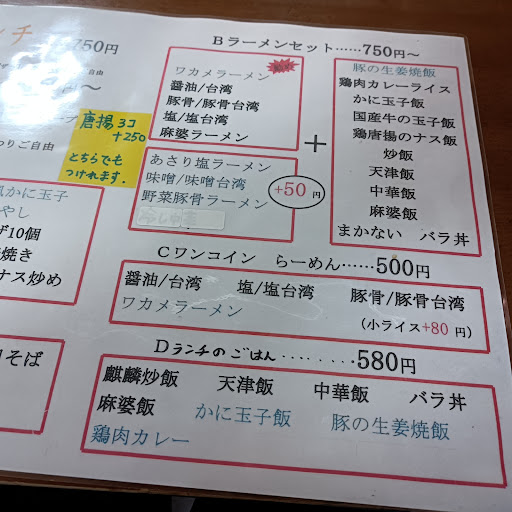 ンチ
750円
自由
円～
わりご自由
唐揚 3コ
+250
どちらでも
つけれます.
風かに玉子
やし
ザ10個
焼き
ナス炒め
そば
Bラーメンセット……750円～
ワカメラーメン
醤油/台湾
豚骨/豚骨台湾
塩/塩台湾
麻婆ラーメン
あさり塩ラーメン
味噌/味噌台湾
野菜豚骨ラーメン
+50円
+
豚の生姜焼飯
鶏肉カレーライス
かに玉子飯
国産牛の玉子飯
鶏唐揚のナス飯
炒飯
天津飯
中華飯
麻婆飯
まかない バラ丼
Cワンコイン らーめん……500円
醤油/台湾 塩/塩台湾 豚骨/豚骨台湾
ワカメラーメン
(小ライス+80円)
Dランチのごはん………580円
麒麟炒飯 天津飯 中華飯 バラ丼
麻婆飯 かに玉子飯 豚の生姜焼飯
鶏肉カレー